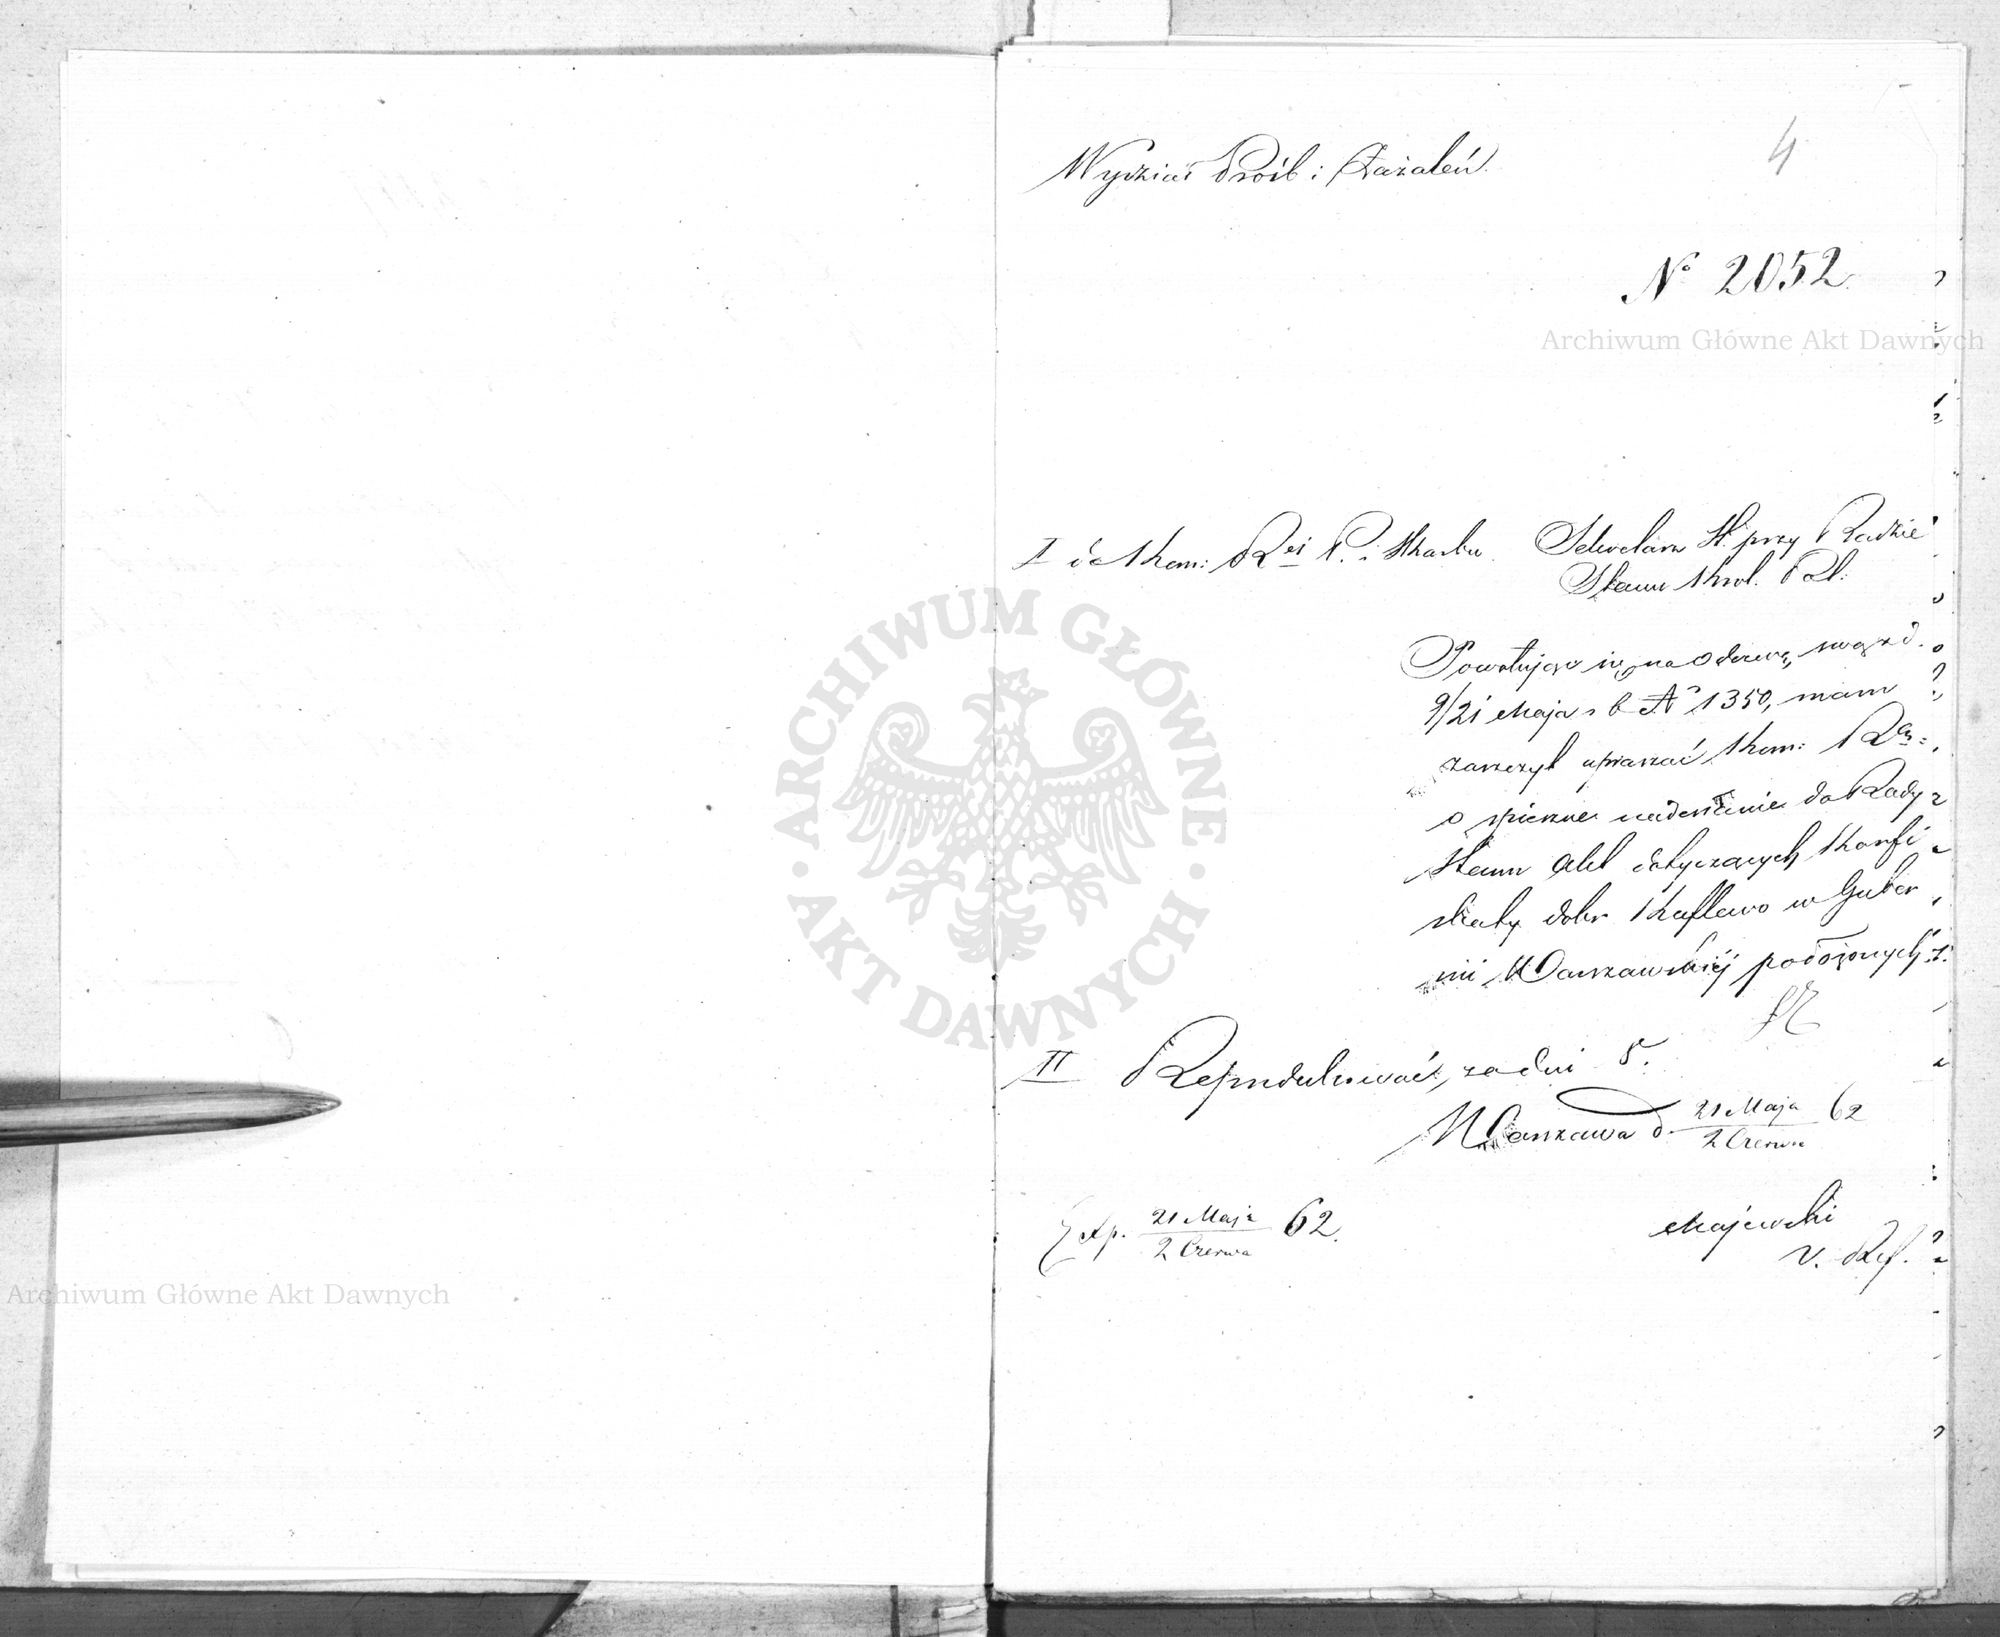 Wydział Próśb i Zażaleń.
4
Nº 2052.
Archiwum Główne Akt Dawnych
I do Kom: Rei P. i Skarbu. Sekretarz St. przy Radzie
Stanu Król. Pol:
Powołując się na Odezwę swą z d.
9/21 Maja r b Nº 1350, mam
zaszczyt upraszać Kom: Rą
o spieszne nadesłanie do Rady
Stanu Akt dotyczących Konfi
skaty dóbr Kuflewo w Guber
nii Warszawskiéj położonych.
II Reprodukować, za dni 8.
Warszawa d. 21 Maja / 2 Czerwca 62
Exp. 21 Maja / 2 Czerwca 62.
Majewski
V. Ref.
ARCHIWUM GŁÓWNE
· AKT DAWNYCH ·
Archiwum Główne Akt Dawnych